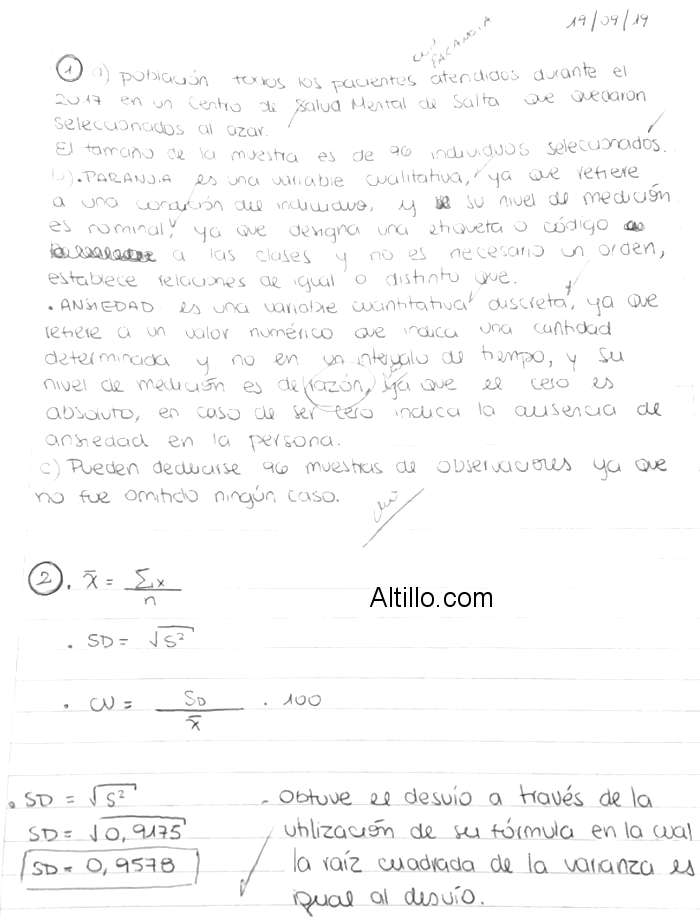 19/09/19
PARANOIA
1 a) población todos los pacientes atendidos durante el
2017 en un centro de Salud Mental de Salta que quedaron
seleccionados al azar.
El tamaño de la muestra es de 96 individuos seleccionados.
b) • PARANOIA es una variable cualitativa, ya que refiere
a una condición del individuo, y su nivel de medición
es nominal, ya que designa una etiqueta o código
a las clases y no es necesario un orden,
establece relaciones de igual o distinto que.
• ANSIEDAD es una variable cuantitativa discreta, ya que
refiere a un valor numérico que indica una cantidad
determinada y no en un intervalo de tiempo, y su
nivel de medición es de razón, ya que el cero es
absoluto, en caso de ser cero indica la ausencia de
ansiedad en la persona.
c) Pueden deducirse 96 muestras de observaciones ya que
no fue omitido ningún caso.
2 • x̄ = Σx / n
Altillo.com
• SD = √S²
• CV = SD / x̄ . 100
• SD = √S²
SD = √0,9175
SD = 0,9578
- Obtuve el desvío a través de la
utilización de su fórmula en la cual
la raíz cuadrada de la varianza es
igual al desvío.